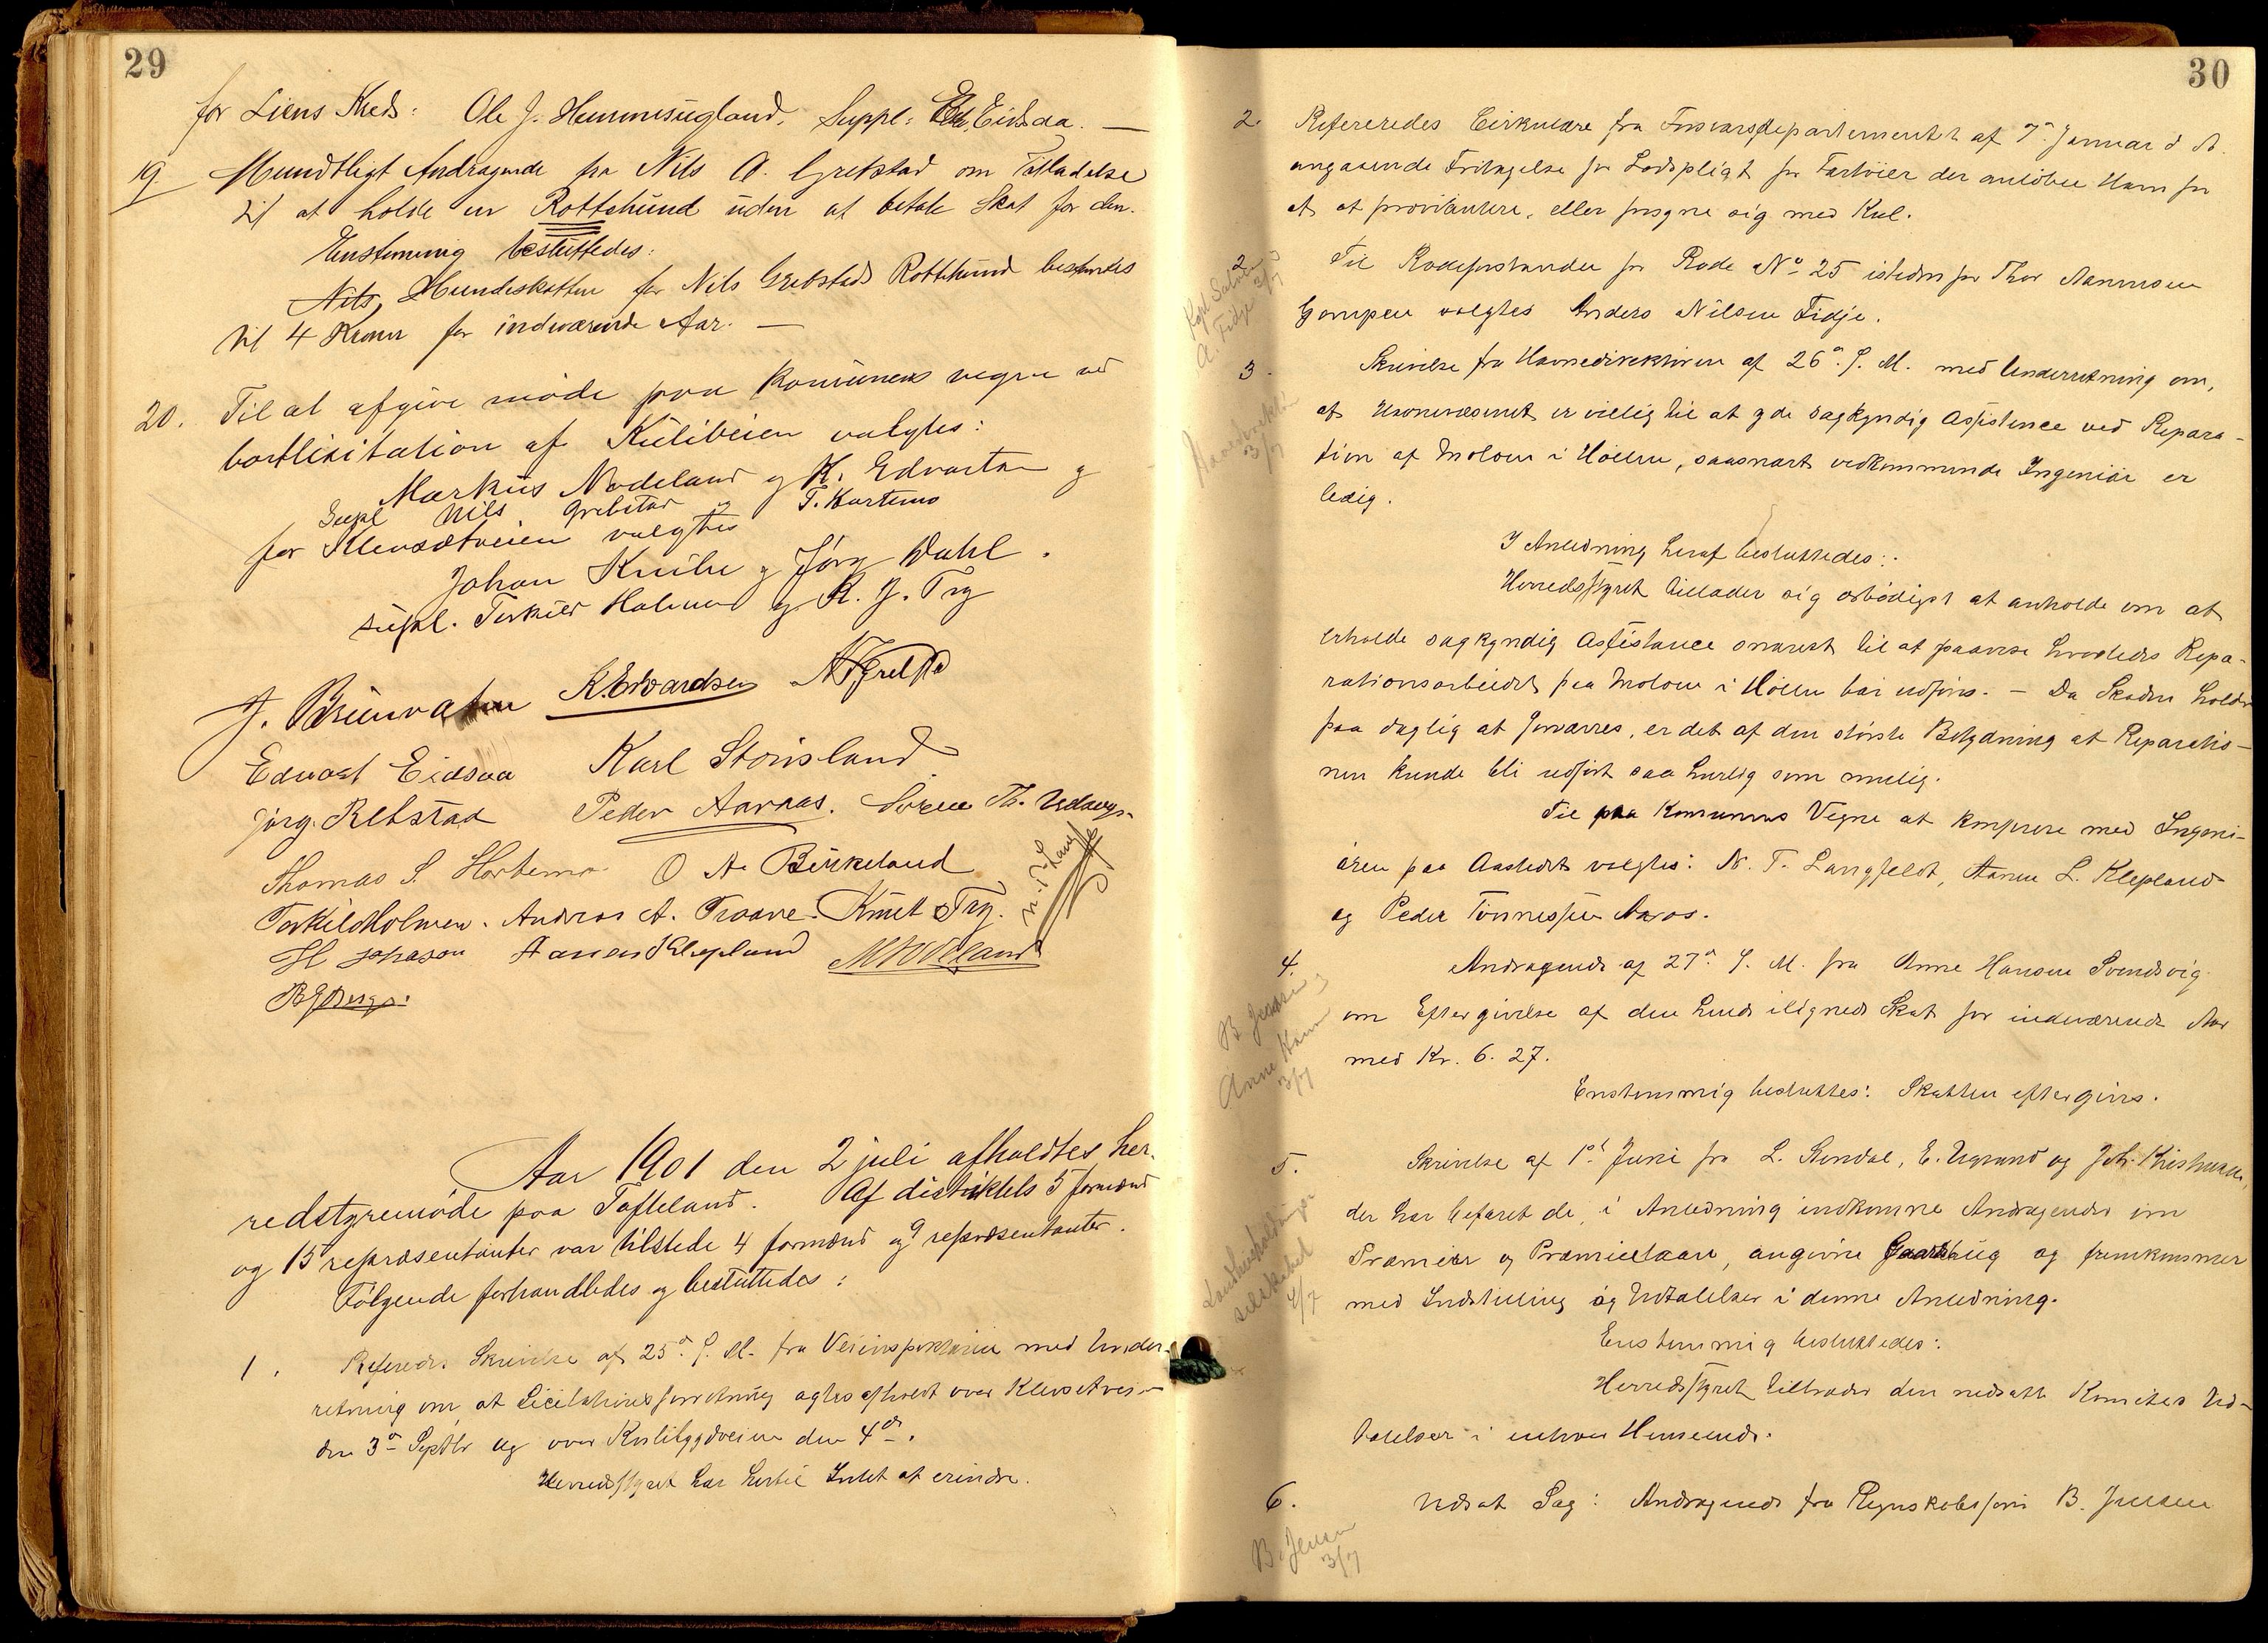 29
for Liens Kreds: Ole J. Hunnesugland, Suppl: Ed. Eidsaa. —
19. Mundtligt Andragende fra Nils A. Grebstad om Tilladelse
til at holde en Rottehund uden at betale Skat for den.
Enstemmig besluttedes:
Nils, Hundeskatten for Nils Grebstads Rottehund bestemtes
til 4 Kroner for indeværende Aar. —
20. Til at afgive møde paa Komunens vegne ved
bortlisitation af Kulibeien valgtes:
Markus Nodeland og K. Edvartsen og
Supl Nils Grebstad og T. Hortemo
for Klevsætveien valgtes
Johan Knibe og Jørg Dahl.
supl. Torkild Holmen og K. J. Try
J. Brunvatne K. Edvardsen N A Grebsta
Edvart Eidsaa Karl Stousland
Jørg. Rebstad Peder Aaraas. Søren Th. Udaugs.
Thomas S. Hortemo O A Birkeland
Torkild Holmen. Andreas A. Traane. Knut Try. N. T. Lang
H Johnson Aanen Klepland MNodeland
B J Berge.
Aar 1901 den 2 juli afholdtes her-
redstyremøde paa Tofteland. Af distriktets 5 formænd
og 15 repræsentanter var tilstede 4 formænd og 9 repræsentanter.
Følgende forhandledes og besluttedes:
1. Refereredes Skrivelse af 25de f. M. fra Veiinspektøren med Under-
retning om, at Licitationsforretning agtes afholdt over Klevsetveien
den 3die Septbr og over Kulibygdveien den 4de.
Herredsstyret har hertil Intet at erindre.
30
2. Refereredes Cirkulære fra Forsvarsdepartementet af 7de Januar d. A.
angaaende Fritagelse for Lodspligt for Fartøier der anløber Havn for
at at proviantere, eller forsyne sig med Kul.
2. Til Rodeforstander for Rode No 25 istedenfor Thor Aanensen
Gompen valgtes Anders Nilsen Fidje.
A. Fidje 3/7
3. Skrivelse fra Havnedirektøren af 26de f. M. med Underretning om,
at Havnevæsenet er villig til at yde sagkyndig Assistence ved Repara-
tion af Moloen i Høllen, saasnart vedkommende Ingeniør er
ledig.
Havnedirektøren
3/7
I Anledning heraf besluttedes:
Herredsstyret tillader sig ærbødigst at anholde om at
erholde sagkyndig Assistance snarest til at paavise hvorledes Repa-
rationsarbeidet paa Moloen i Høllen bør udføres. — Da Skaden holder
paa daglig at forværres, er det af den største Betydning at Reparatio-
nen kunde bli udført saa hurtig som mulig.
Til paa Komunens Vegne at konferere med Ingeni-
øren paa Aastedet valgtes: N. T. Langfeldt, Aanen L. Klepland
og Peder Tønnessen Aaros.
4. Andragende af 27de f. M. fra Anne Hansen Svendsvig
om Eftergivelse af den hende ilignede Skat for indeværende Aar
med Kr. 6.27.
B Jensen
Anne Hans
3/7
Enstemmig besluttes: Skatten eftergives.
5. Skrivelse af 1ste Juni fra L. Stendal, E. Ugland og Joh. Kristensen,
der har befaret de, i Anledning indkomne Andragender om
Præmier og Præmielaan, angivne Gaardbrug og fremkommer
med Indstilling og Udtalelser i denne Anledning.
Landhusholdnings
selskabet
4/7
Enstemmig besluttedes:
Herredsstyret tiltræder den nedsatte Komites Ud-
talelser i enhver Henseende.
6. Udsat Sag: Andragende fra Regnskabsfører B. Jensen
B. Jensen
3/7